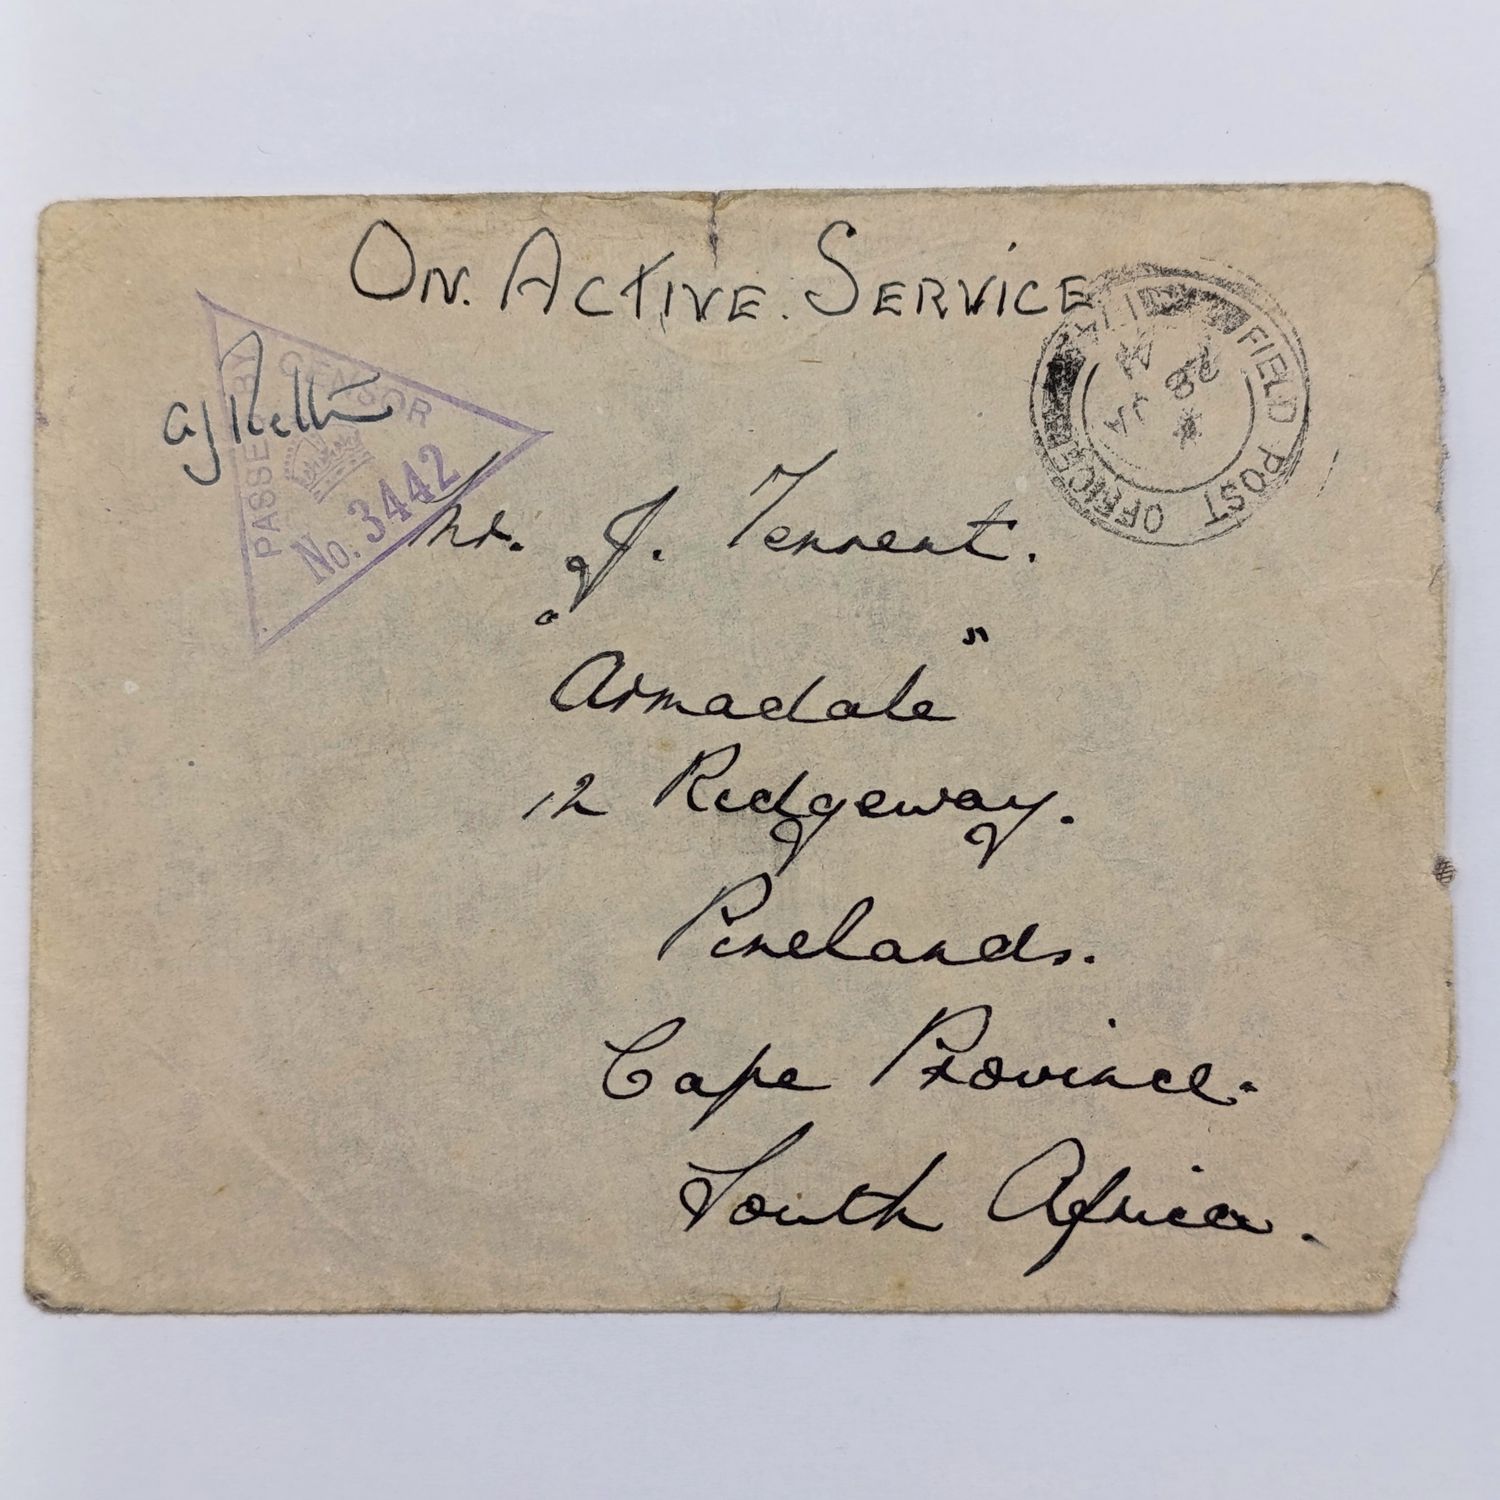 ON. ACTIVE. SERVICE
PASSED BY
CENSOR
No. 3442
FIELD POST OFFICE
28 JA
Mr. J. Tennent.
"Armadale"
12 Ridgeway.
Pinelands.
Cape Province.
South Africa.